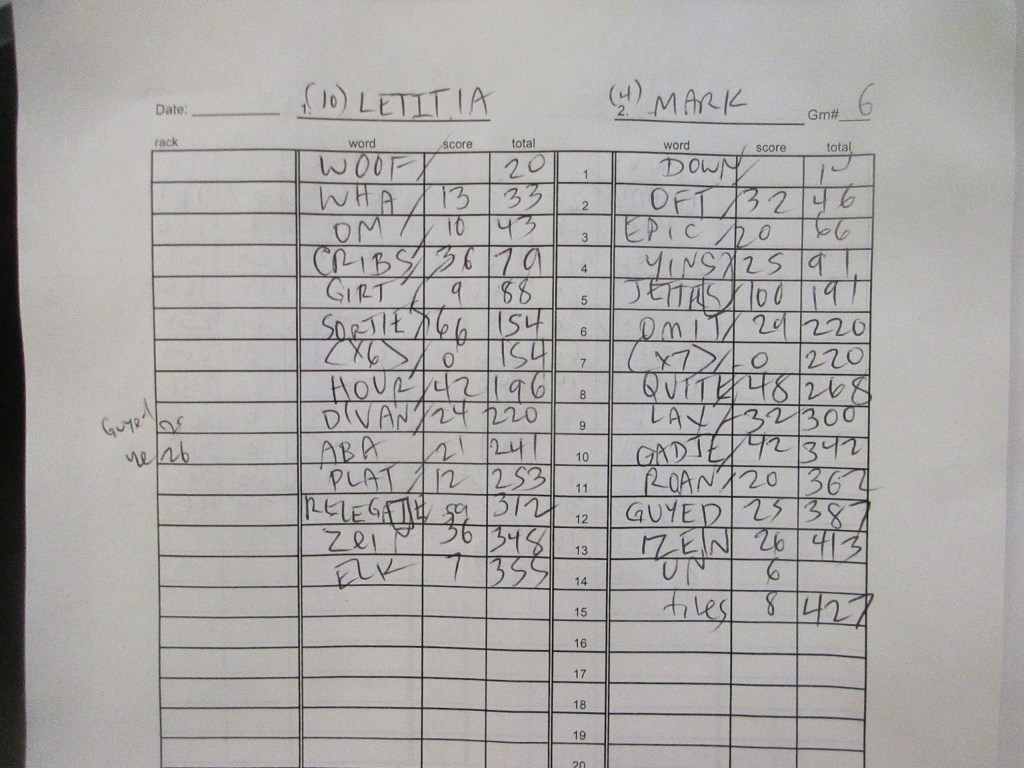 Date: (10) 1. LETITIA (4) 2. MARK Gm# 6
rack word score total word score total
WOOF 20 1 DOWN
WHA 13 33 2 OFT 32 46
OM 10 43 3 EPIC 20 66
CRIBS 36 79 4 YINS 25 91
GIRT 9 88 5 JETTIES 100 191
SORTIE 66 154 6 OMIT 29 220
(X6) 0 154 7 (X7) 0 220
HOUR 42 196 8 QUITE 48 268
Guyed 25 DIVAN 24 220 9 LAX 32 300
26 ABA 21 241 10 GADJE 42 342
PLAT 12 253 11 ROAN 20 362
RELEGATE 59 312 12 GUYED 25 387
ZRI 36 348 13 26 413
ELK 7 355 14 UN 6
15 tiles 8 427
16
17
18
19
20